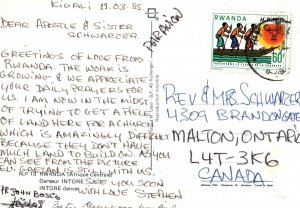 KIGALI 19.03.85
DEAR APOSTLE & SISTER
SCHWARZER
GREETINGS OF LOVE FROM
RWANDA. THE WORK IS
GROWING & WE APPRECIATE
YOUR DAILY PRAYERS FOR
US. I AM NOW IN THE MIDST
OF TRYING TO GET A PIECE
OF LAND HERE FOR A CHURCH
WHICH IS AMAZINGLY DIFFICULT
BECAUSE THEY DON'T HAVE
MUCH LAND TO BUILD ON. AS YOU
CAN SEE FROM THE PICTURE
SEE YOU SOON
WITH LOVE STEPHEN
RWANDA (Afrique Centrale)
Danseur INTORE
INTORE dancer
PAR AVION
RWANDA
60c
REV & MRS SCHWARZER
4309 BRANDONGATE
MALTON, ONTARI
L4T-3K6
CANADA